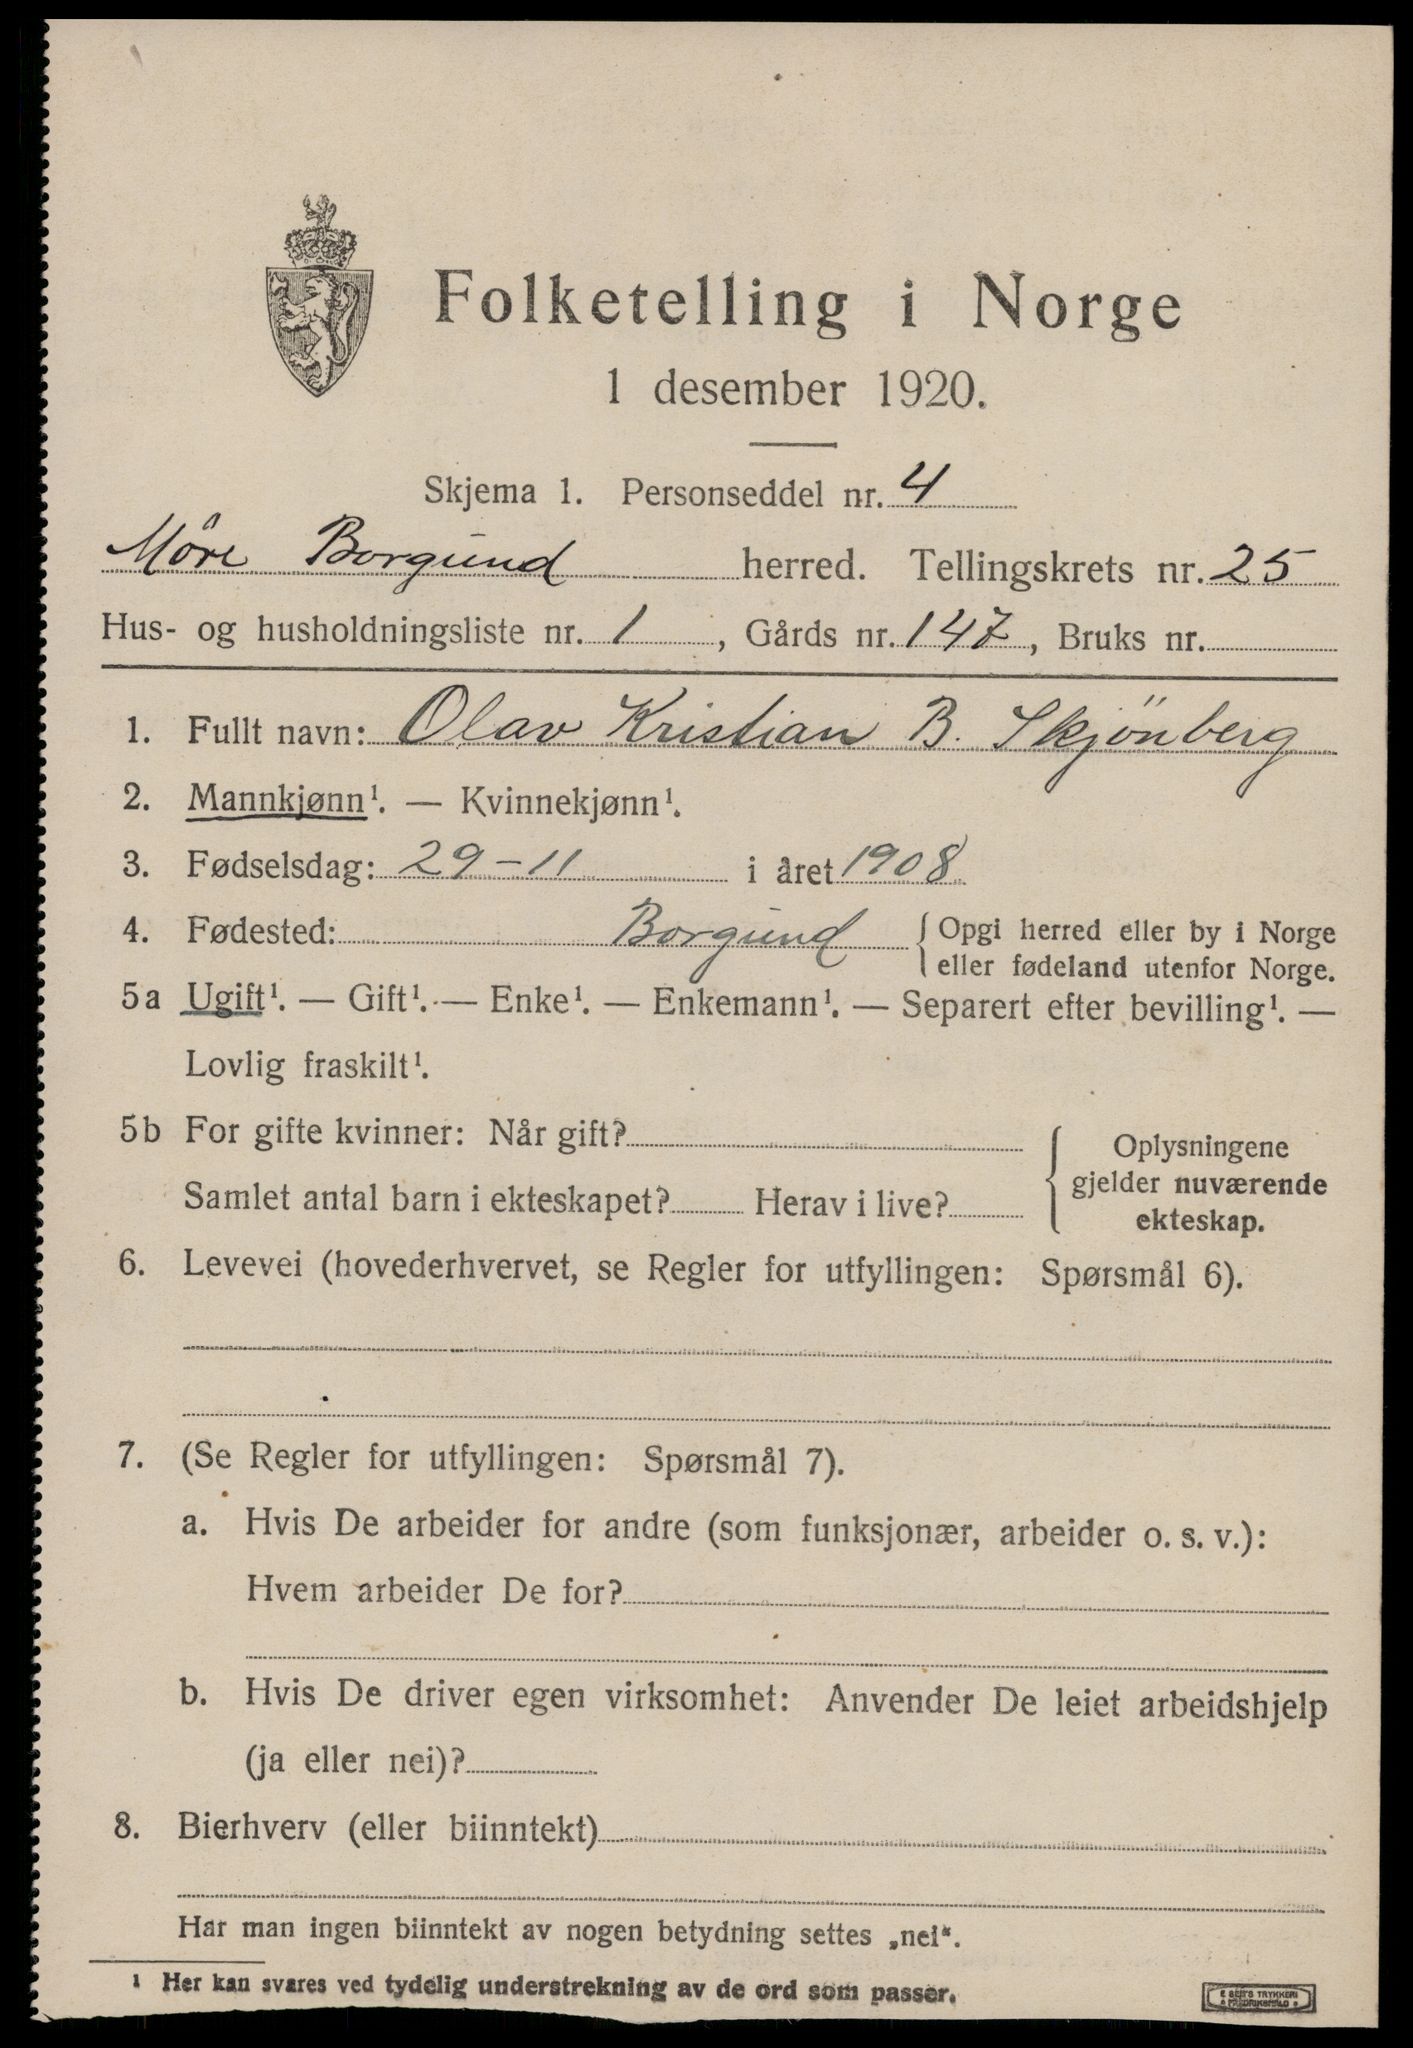 Folketelling i Norge
1 desember 1920.
Skjema 1. Personseddel nr. 4
Möre Borgund herred. Tellingskrets nr. 25
Hus- og husholdningsliste nr. 1, Gårds nr. 147, Bruks nr.
1. Fullt navn: Olav Kristian B. Skjönberg
2. Mannkjønn¹. — Kvinnekjønn¹.
3. Fødselsdag: 29-11 i året 1908
4. Fødested: Borgund { Opgi herred eller by i Norge
eller fødeland utenfor Norge.
5a Ugift¹. — Gift¹. — Enke¹. — Enkemann¹. — Separert efter bevilling¹. —
Lovlig fraskilt¹.
5b For gifte kvinner: Når gift?
Samlet antal barn i ekteskapet? Herav i live?
{ Oplysningene
gjelder nuværende
ekteskap.
6. Levevei (hovederhvervet, se Regler for utfyllingen: Spørsmål 6).
7. (Se Regler for utfyllingen: Spørsmål 7).
a. Hvis De arbeider for andre (som funksjonær, arbeider o. s. v.):
Hvem arbeider De for?
b. Hvis De driver egen virksomhet: Anvender De leiet arbeidshjelp
(ja eller nei)?
8. Bierhverv (eller biinntekt)
Har man ingen biinntekt av nogen betydning settes „nei“.
¹ Her kan svares ved tydelig understrekning av de ord som passer.
E SEM'S TRYKKERI
FREDRIKSHALD